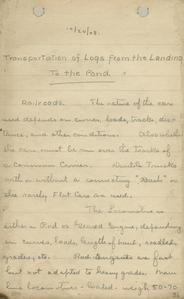 Transportation of Logs from the Landing
To the Pond
Railroads. The nature of the car
used depends on curves, loads, tracks, dis-
tance, and other conditions. Also whether
the cars must be run over the tracks of
a Common Carrier. Double Trucks
with or without a connecting "Reach" or
else rarely, Flat Cars are used.
The Locomotive is
either a Rod or Geared Engine, depending
on curves, loads, length of haul, roadbed,
grades, etc. Rod Engines are fast
but not adapted to heavy grades. Main
line locomotives - loaded - weigh 50-70